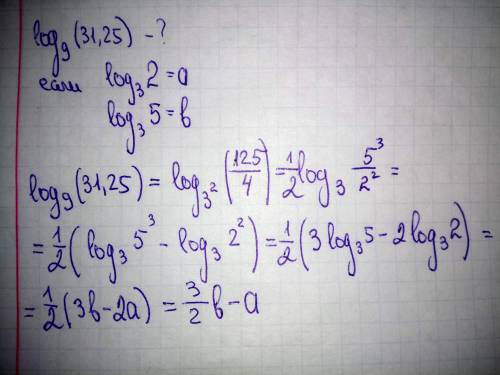 log₉(31,25) - ?
если log₃2 = a
log₃5 = b
log₉(31,25) = log₃²(125/4) = 1/2 log₃ 5³/2² =
= 1/2(log₃5³ - log₃2²) = 1/2(3log₃5 - 2log₃2) =
= 1/2(3b - 2a) = 3/2 b - a